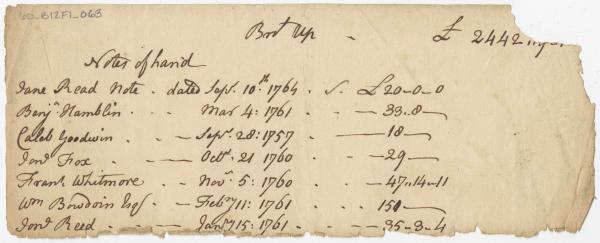 60_B12F1_063
Brot Up - £ 2442
Notes of hand
Jane Read Note . dated Sepr. 10th. 1764 . £20-0-0
Benjn. Hamblin . — Mar 4: 1761 . . — 33-8 —
Caleb Goodwin . — Sepr. 28: 1757 — 18 —
Jonn. Fox . . — Octr. 21 1760 . — 29 —
Frank Whitmore . — Novr. 5: 1760 . . — 47-14-11
Wm Bowdoin Esqr . — Febry 11: 1761 . . 150 —
Jonn. Reed . . — Janry 15: 1761 . . — 35-3-4